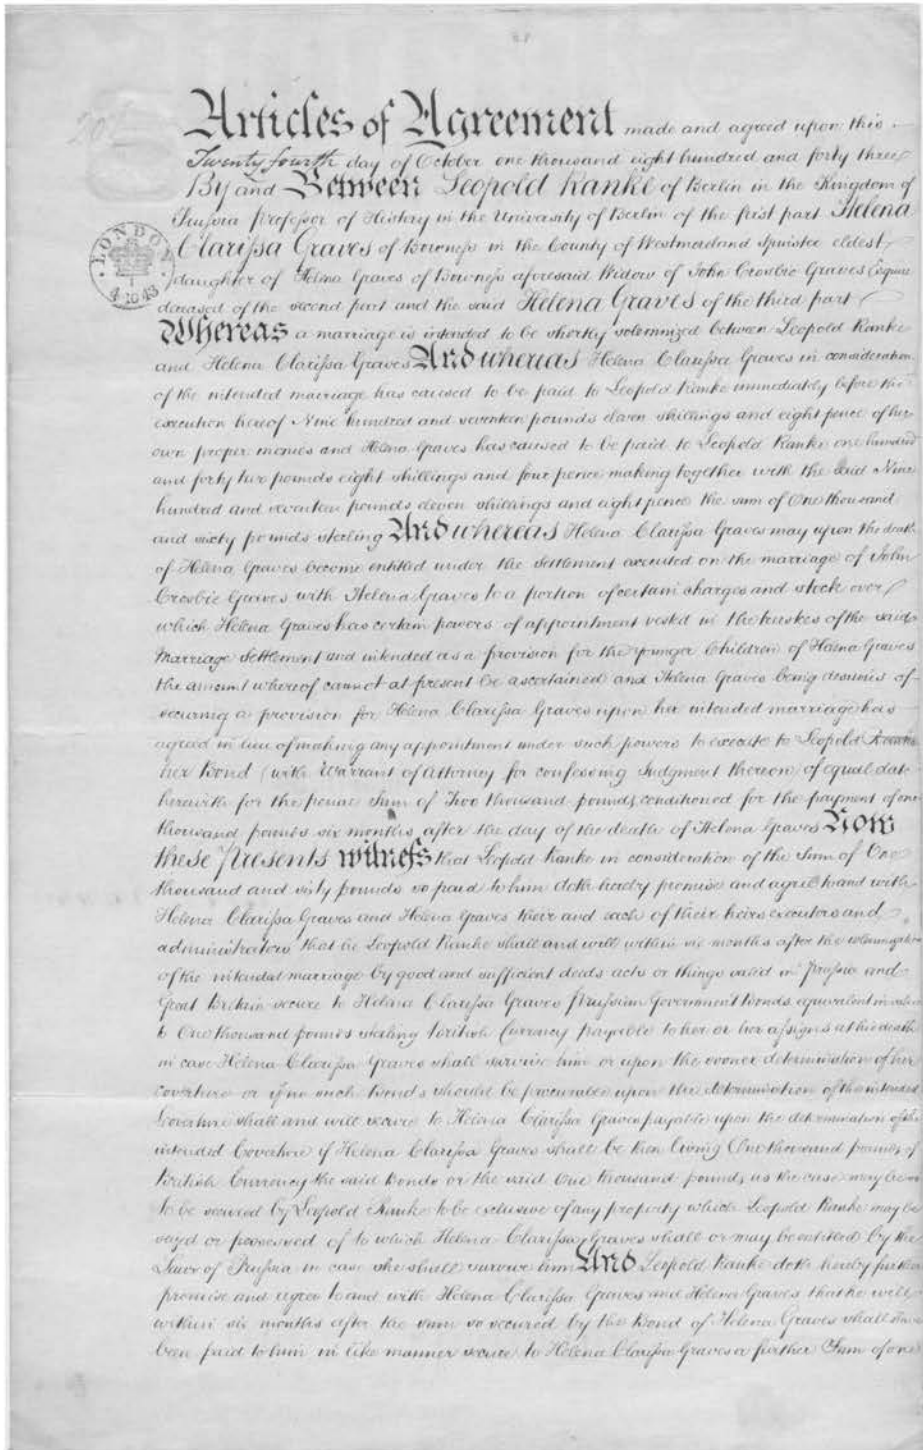 20/
LONDON
4·10·43
Articles of Agreement made and agreed upon this
Twenty fourth day of October one thousand eight hundred and forty three
By and Between Leopold Ranke of Berlin in the Kingdom of
Prussia Professor of History in the University of Berlin of the first part Helena
Clarissa Graves of Bowness in the County of Westmorland Spinster eldest
daughter of Helena Graves of Bowness aforesaid Widow of John Crosbie Graves Esquire
deceased of the second part and the said Helena Graves of the third part
Whereas a marriage is intended to be shortly solemnized between Leopold Ranke
and Helena Clarissa Graves And whereas Helena Clarissa Graves in consideration
of the intended marriage has caused to be paid to Leopold Ranke immediately before the
execution hereof Nine hundred and seventeen pounds eleven shillings and eight pence of her
own proper monies and Helena Graves has caused to be paid to Leopold Ranke one hundred
and forty two pounds eight shillings and four pence making together with the said Nine
hundred and seventeen pounds eleven shillings and eight pence the sum of One thousand
and sixty pounds sterling And whereas Helena Clarissa Graves may upon the death
of Helena Graves become entitled under the Settlement executed on the marriage of John
Crosbie Graves with Helena Graves to a portion of certain charges and stock over
which Helena Graves has certain powers of appointment vested in the trustees of the said
Marriage Settlement and intended as a provision for the younger Children of Helena Graves
the amount whereof cannot at present be ascertained and Helena Graves being desirous of
securing a provision for Helena Clarissa Graves upon her intended marriage has
agreed in lieu of making any appointment under such powers to execute to Leopold Ranke
her Bond (with Warrant of Attorney for confessing Judgment thereon) of equal date
herewith for the penal Sum of Two thousand pounds conditioned for the payment of one
thousand pounds six months after the day of the death of Helena Graves Now
these Presents witness that Leopold Ranke in consideration of the Sum of One
thousand and sixty pounds so paid to him doth hereby promise and agree to and with
Helena Clarissa Graves and Helena Graves their and each of their heirs executors and
administrators that he Leopold Ranke shall and will within six months after the solemnization
of the intended marriage by good and sufficient deeds acts or things valid in Prussia and
Great Britain secure to Helena Clarissa Graves Prussian Government Bonds equivalent in value
to One thousand pounds sterling British Currency payable to her or her assigns at his death
in case Helena Clarissa Graves shall survive him or upon the sooner determination of her
coverture or if no such Bonds should be procurable upon the determination of the intended
Coverture shall and will secure to Helena Clarissa Graves payable upon the determination of the
intended Coverture if Helena Clarissa Graves shall be then living One thousand pounds of
British Currency the said Bonds or the said One thousand pounds as the case may be so
to be secured by Leopold Ranke to be exclusive of any property which Leopold Ranke may be
seized or possessed of to which Helena Clarissa Graves shall or may be entitled by the
Laws of Prussia in case she shall survive him And Leopold Ranke doth hereby further
promise and agree to and with Helena Clarissa Graves and Helena Graves that he will
within six months after the sum so secured by the Bond of Helena Graves shall have
been paid to him in like manner secure to Helena Clarissa Graves a further Sum of one